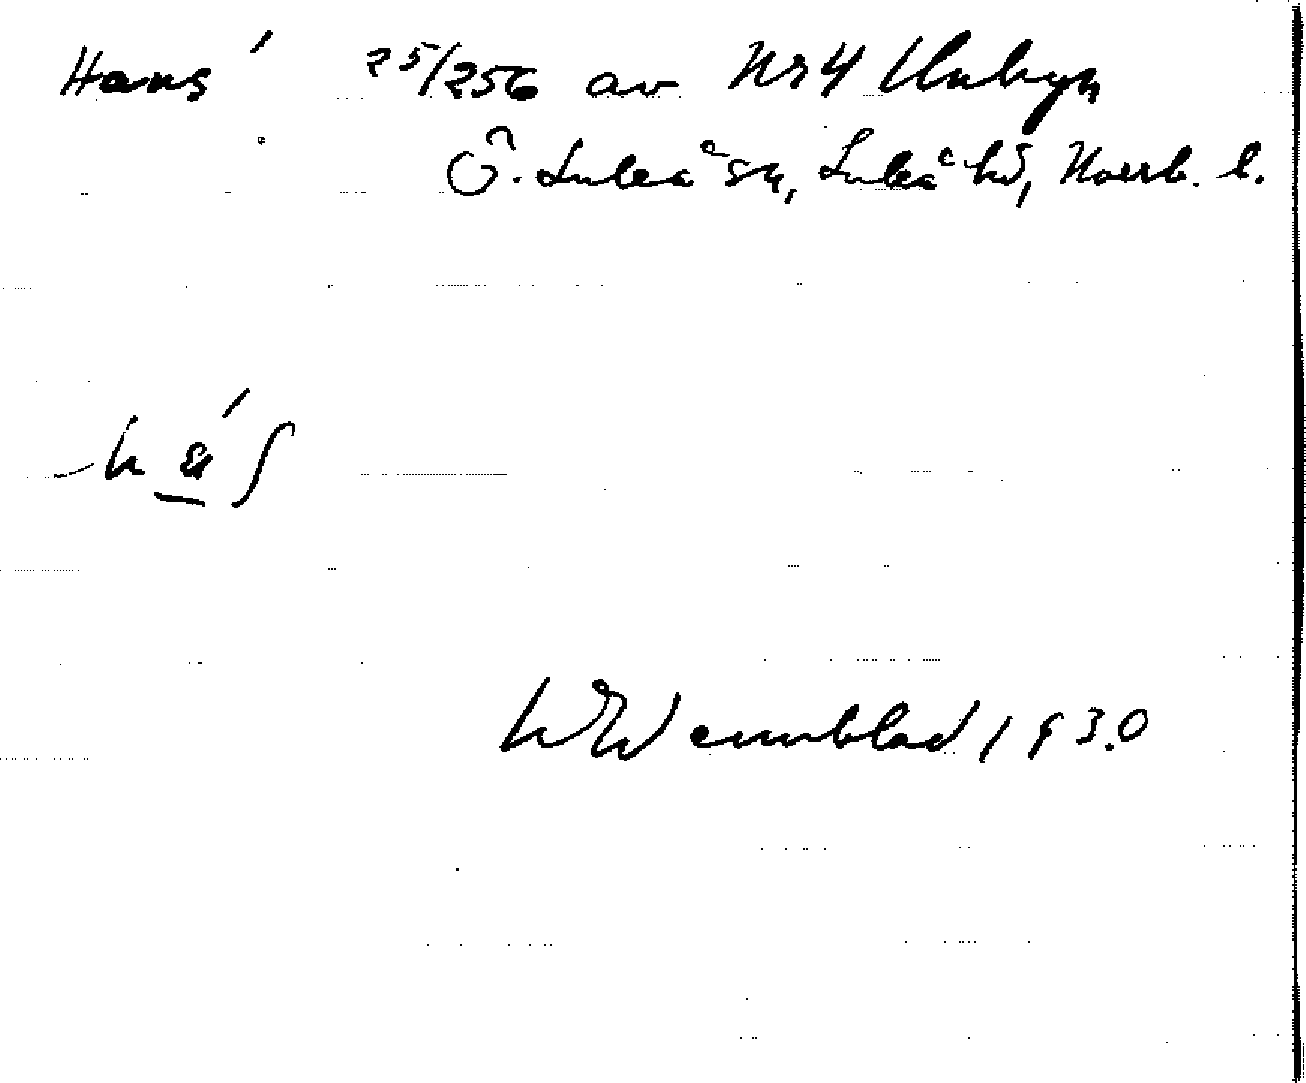 Hans' 25/256 av Nr 4 Unbyn
Ö. Luleå sn, Luleå hd, Norrb. l.
W Wennblad 1930